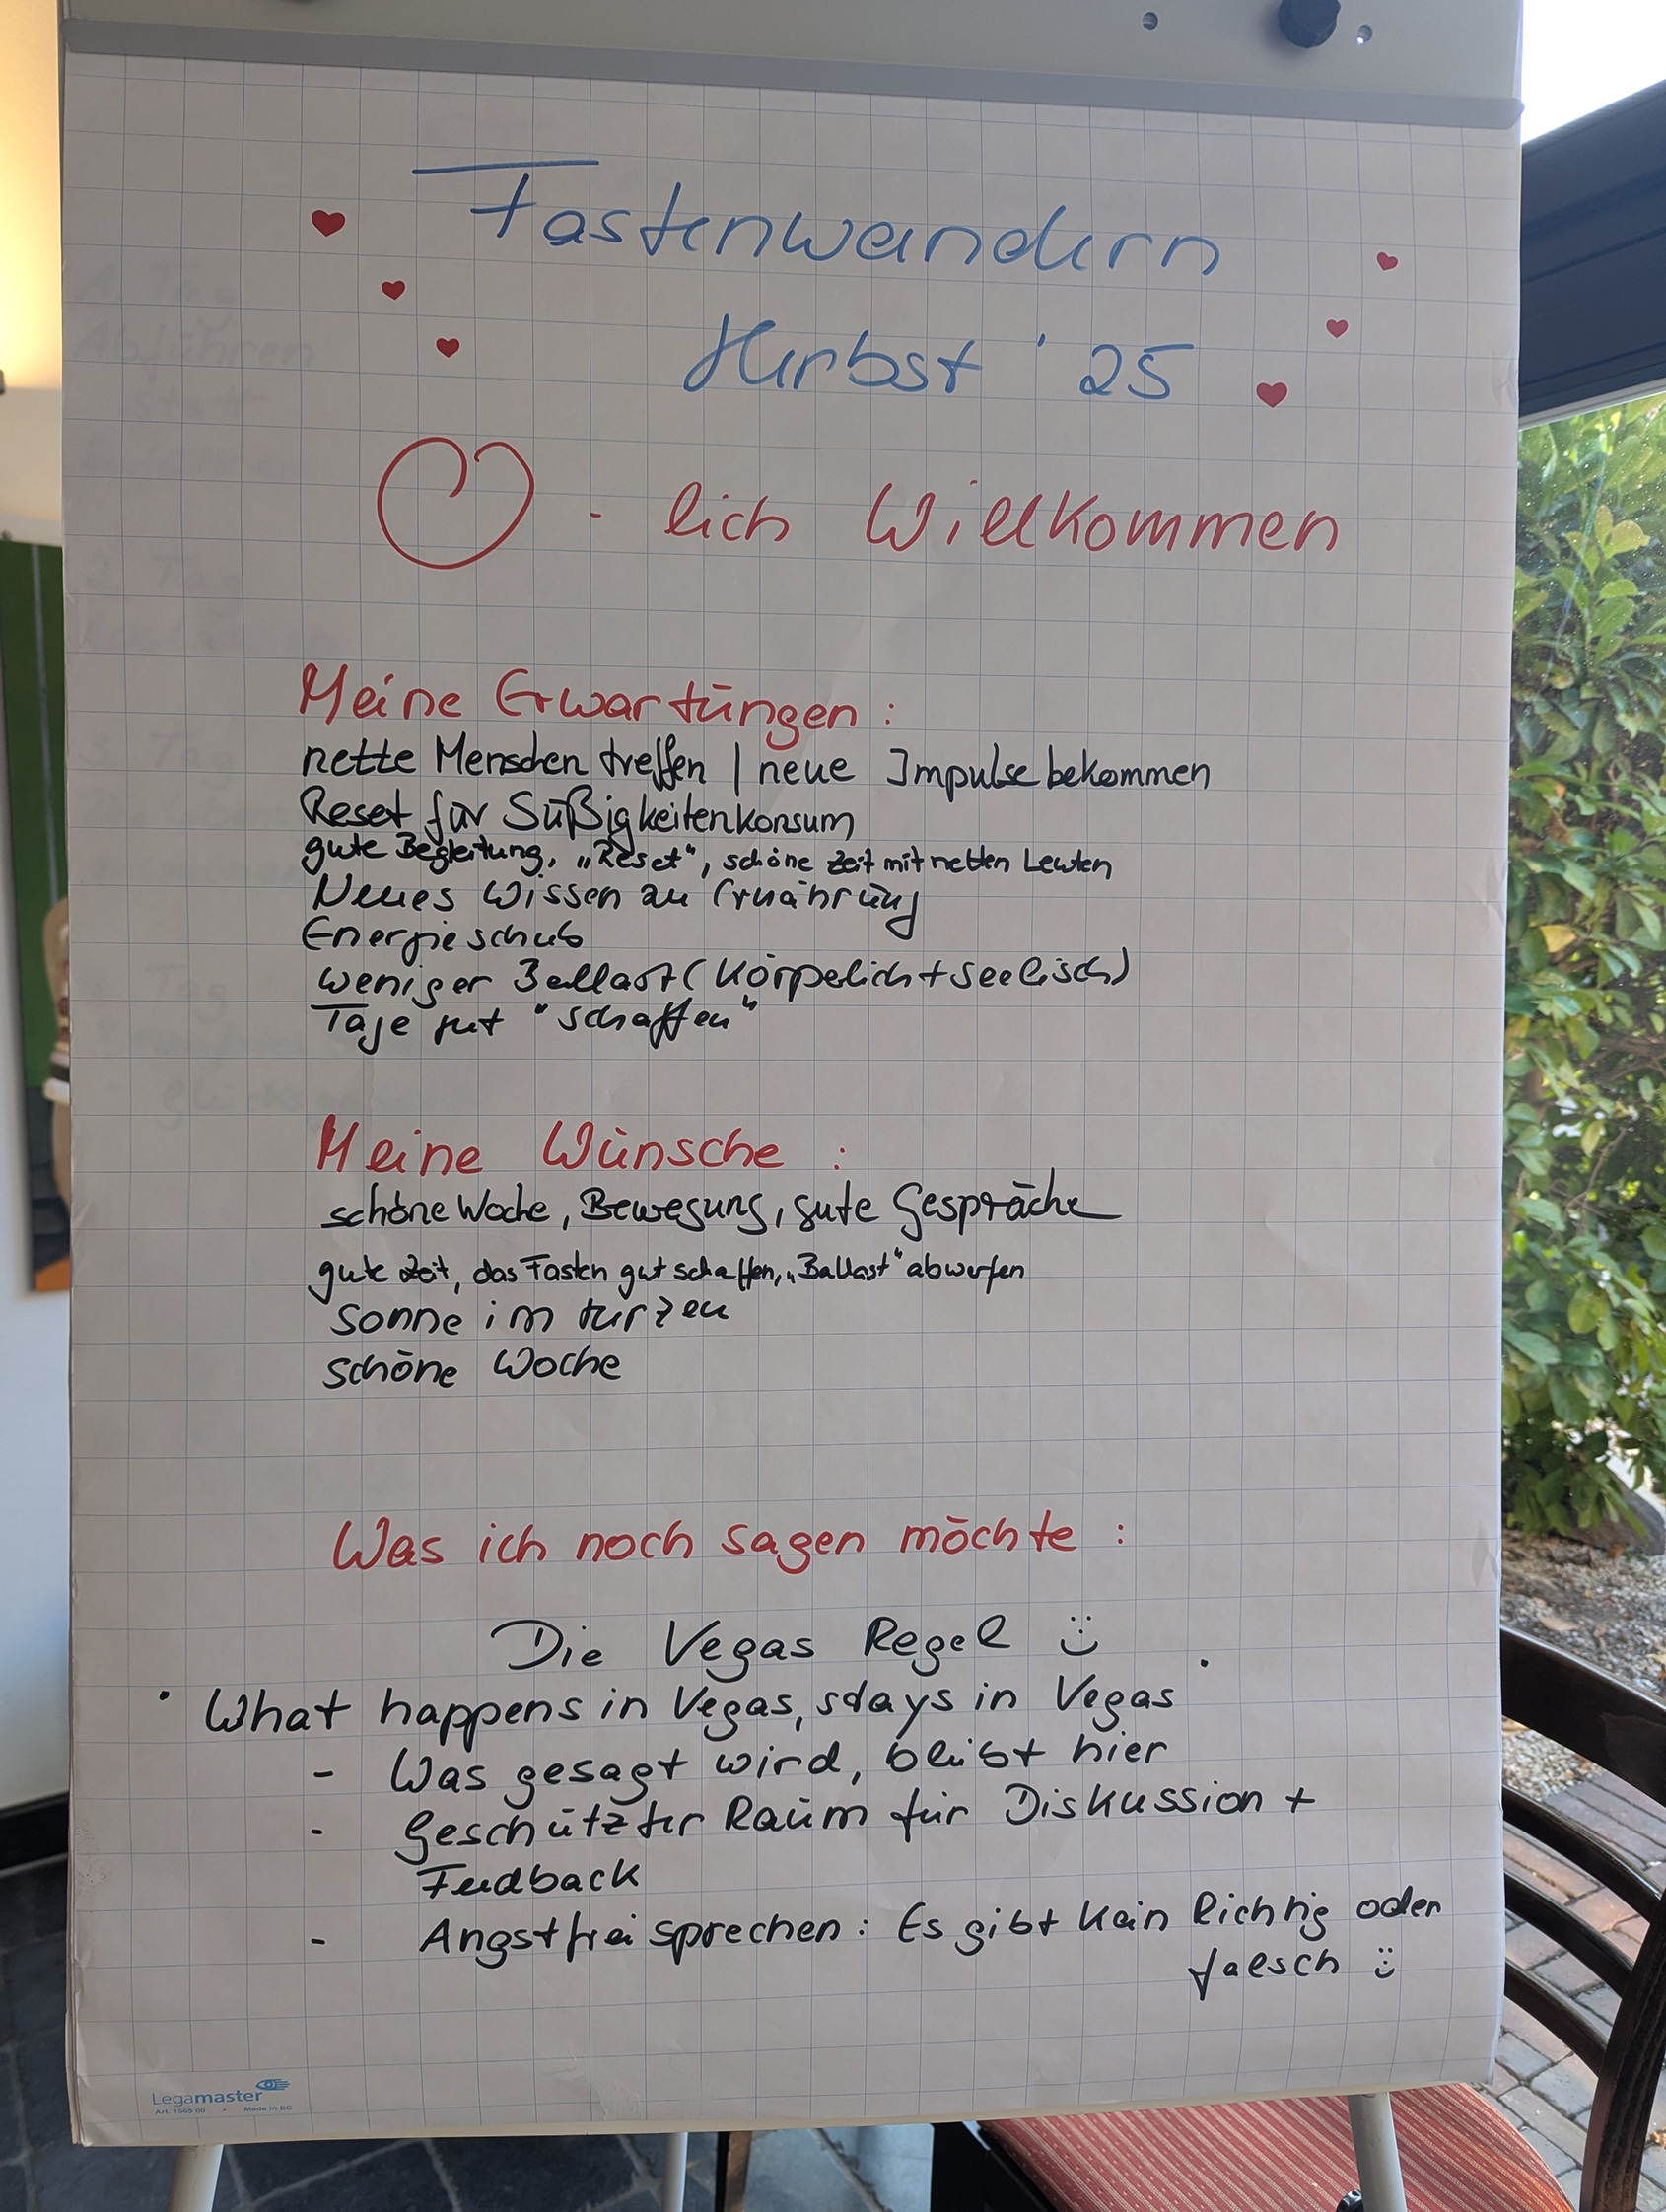 Fastenwandern
Herbst '25
- lich Willkommen
Meine Erwartungen:
nette Menschen treffen | neue Impulse bekommen
Reset für Süßigkeitenkonsum
gute Begleitung, „Reset“, schöne Zeit mit netten Leuten
Neues Wissen zu Ernährung
Energieschub
weniger Ballast (körperlich + seelisch)
Tage gut "schaffen"
Meine Wünsche:
schöne Woche, Bewegung, gute Gespräche
gute Zeit, das Fasten gut schaffen, „Ballast“ abwerfen
Sonne im Herzen
schöne Woche
Was ich noch sagen möchte:
Die Vegas Regel :)
' What happens in Vegas, stays in Vegas '
- Was gesagt wird, bleibt hier
- Geschützter Raum für Diskussion +
Feedback
- Angstfrei sprechen: Es gibt kein Richtig oder
falsch :)
Legamaster
Art. 1565 00 • Made in EC